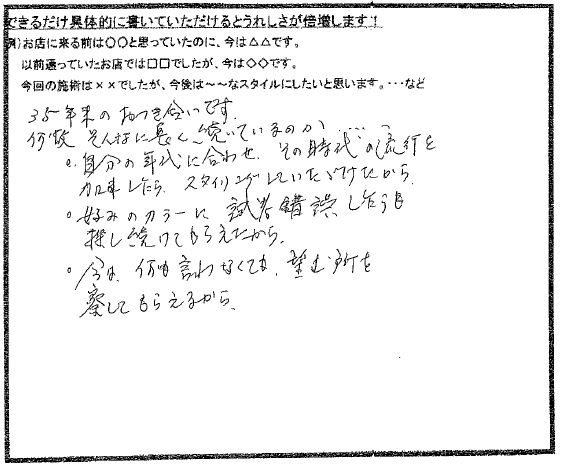 できるだけ具体的に書いていただけるとうれしさが倍増します！
例)お店に来る前は〇〇と思っていたのに、今は△△です。
以前通っていたお店では□□でしたが、今は◇◇です。
今回の施術は××でしたが、今後は～～なスタイルにしたいと思います。…など
35年来のおつき合いです。
何故 そんなに長く続いているのか…、
自分の年代に合わせ、その時代の流行を
加味しながら、スタイリングしていただけたから。
好みのカラーに 試行錯誤しながらも
探し続けてもらえたから。
今は、何も言わなくても、望む所を
察してもらえるから。